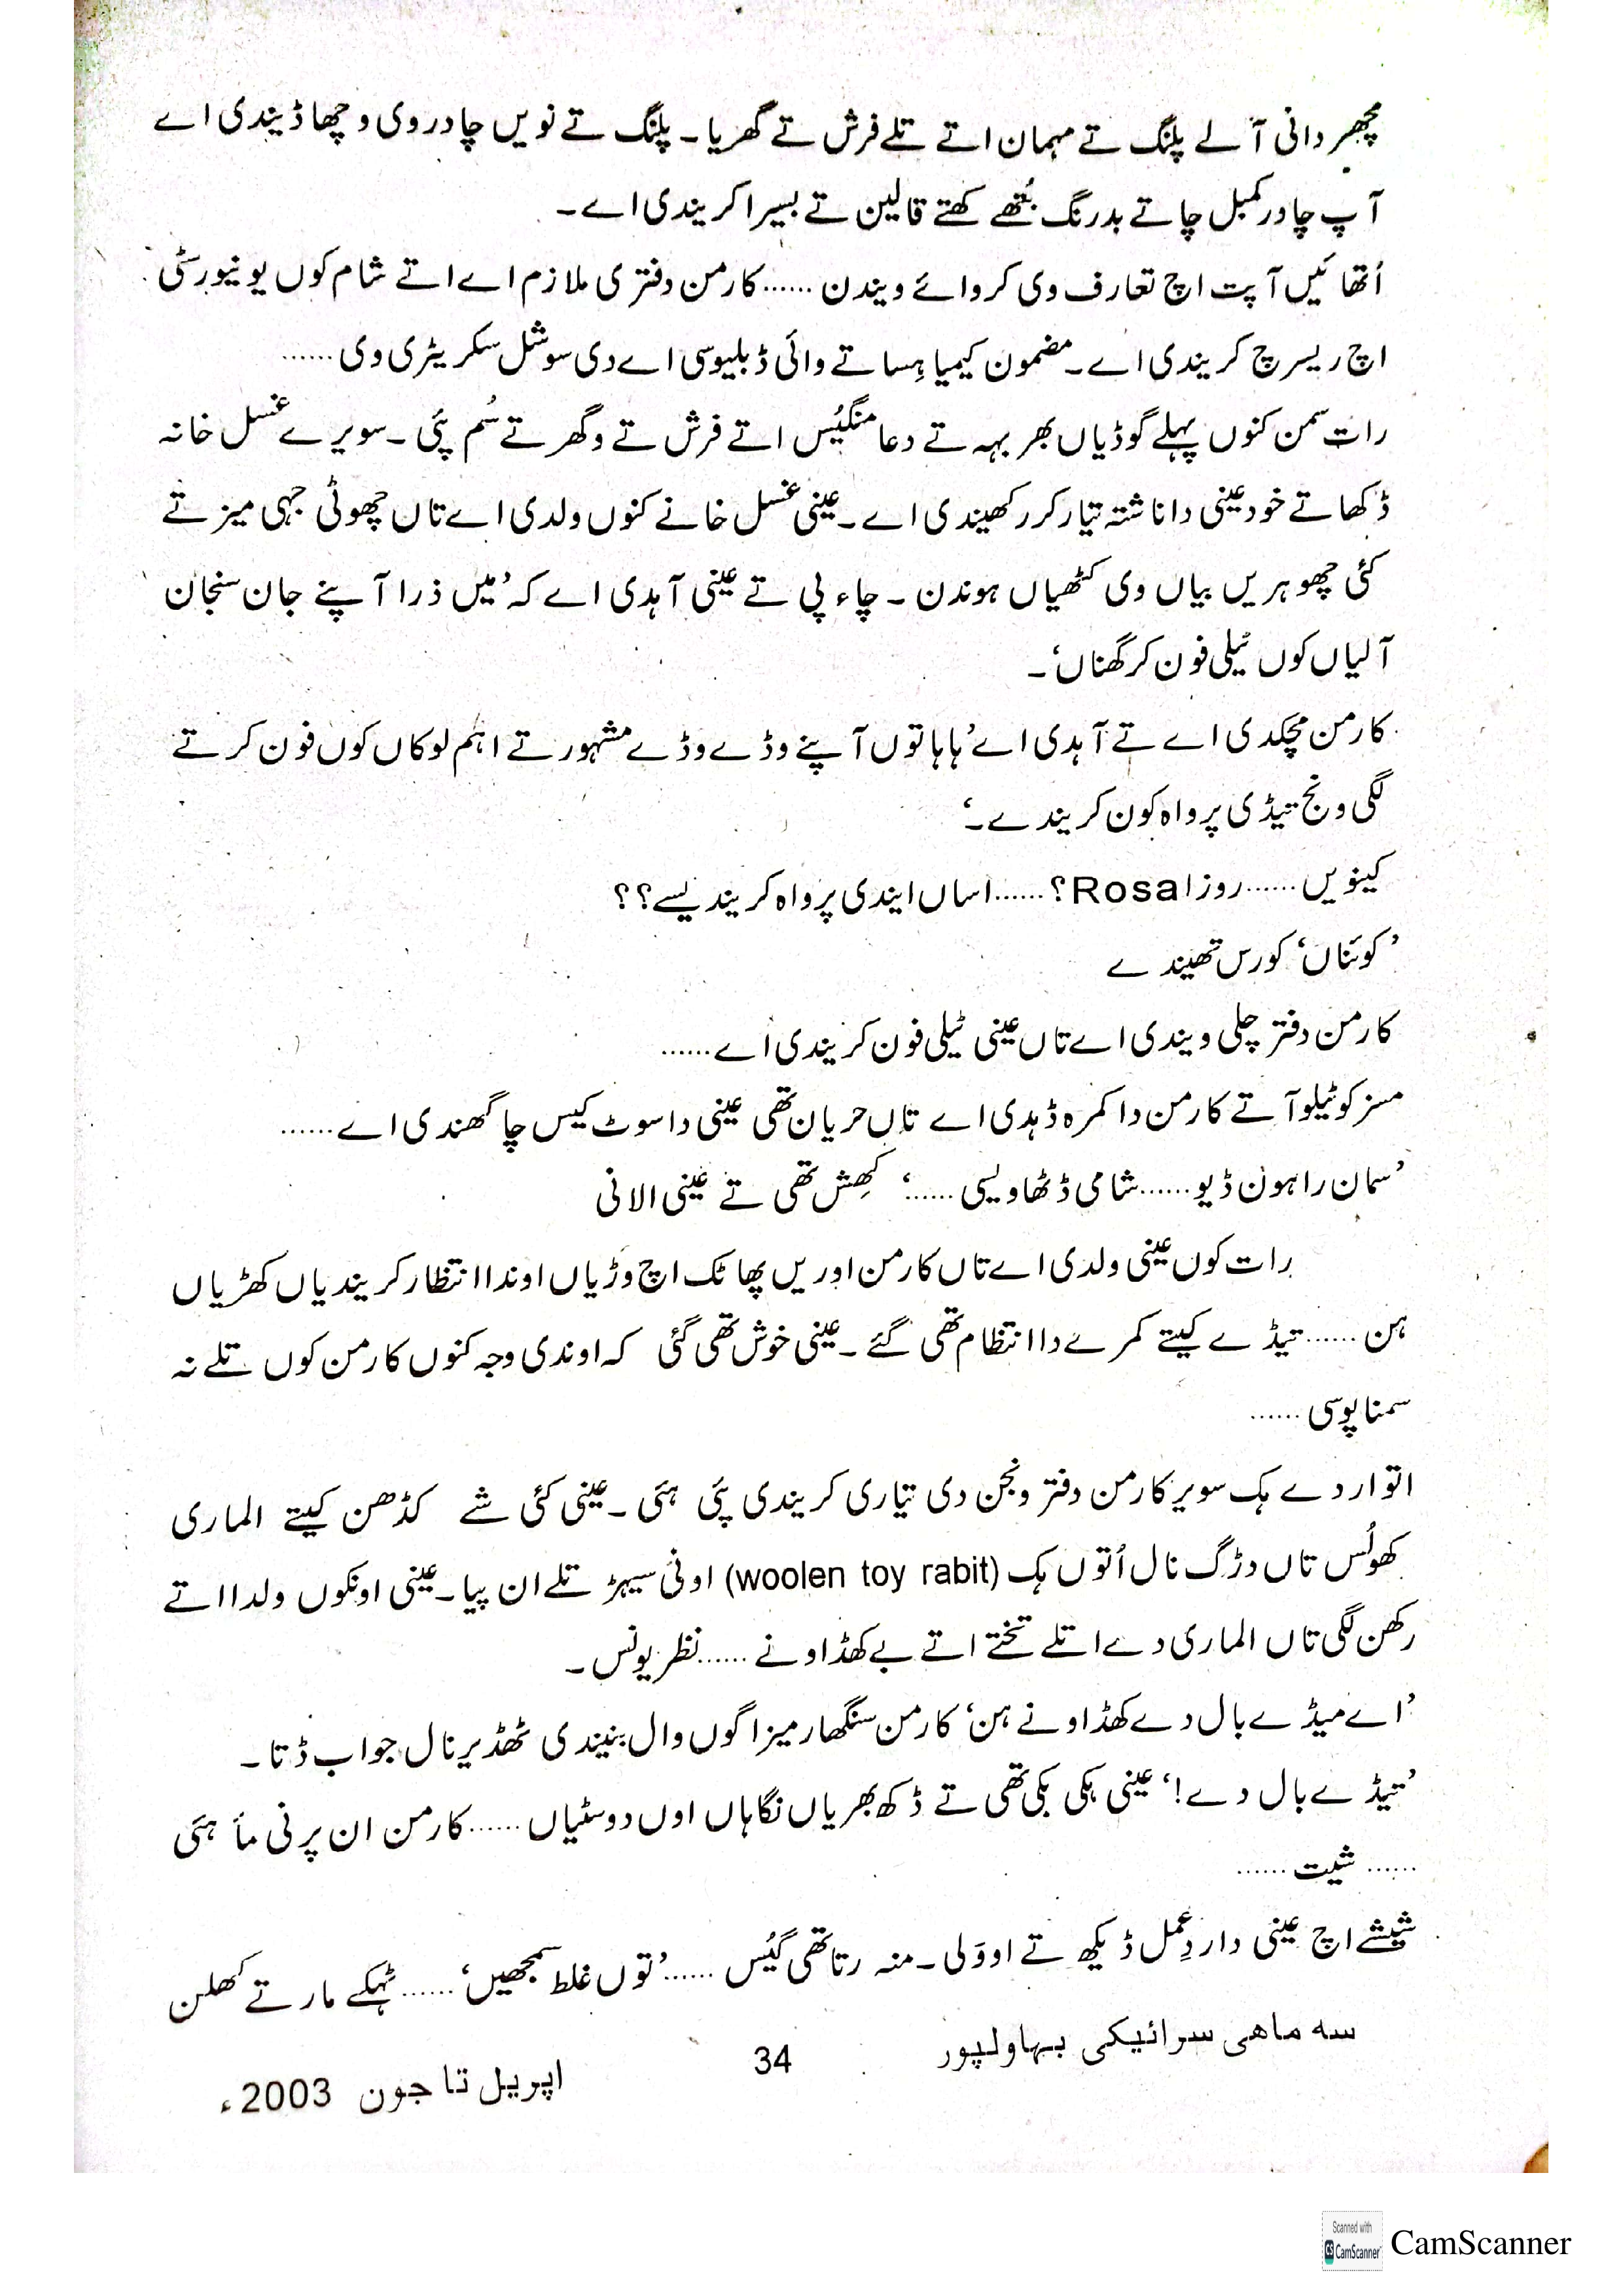 مچھر دانی آلے پلنگ تے مہمان اتے تلے فرش تے گھریا۔ پلنگ تے نویں چادر وی وچھا ڈیندی اے
آپ چادر کمبل چاتے بدرنگ بُتھے کھتے قالین تے بسیرا کریندی اے۔
اُتھائیں آپت اچ تعارف وی کروائے ویندن ......کارمن دفتری ملازم اے اتے شام کوں یونیورسٹی
اچ ریسرچ کریندی اے۔ مضمون کیمیا ہِسا تے وائی ڈبلیو سی اے دی سوشل سکریٹری وی ......
رات سمن کنوں پہلے گوڈیاں بھر بہہ تے دعا منگیُس اتے فرش تے وگھر تے سُم پئی۔ سویرے غسل خانہ
ڈکھاتے خود عینی دا ناشتہ تیار کر رکھیندی اے۔ عینی غسل خانے کنوں ولدی اے تاں چھوٹی جہی میز تے
کئی چھوہریں بیاں وی کٹھیاں ہوندن ۔ چاء پی تے عینی آہدی اے کہ ’میں ذرا آپنے جان سنجان
آلیاں کوں ٹیلی فون کر گھناں‘۔
کارمن مچکدی اے تے آہدی اے ’ہاہا توں آپنے وڈے وڈے مشہور تے اہم لوکاں کوں فون کرتے
لگی ونج تیڈی پرواہ کون کریندے۔‘
کینویں ......روزا Rosa؟ ......اساں ایندی پرواہ کریندیسے؟؟
’کوئناں‘ کورس تھیندے
کارمن دفتر چلی ویندی اے تاں عینی ٹیلی فون کریندی اے ......
مسز کوٹیلو آتے کارمن دا کمرہ ڈہدی اے تاں حریان تھی عینی دا سوٹ کیس چا گھندی اے ......
’سمان راہون ڈیو ......شامی ڈٹھا ویسی ......‘ کھِش تھی تے عینی الانی
رات کوں عینی ولدی اے تاں کارمن اوریں پھاٹک اچ وڑیاں اوندا انتظار کریندیاں کھڑیاں
ہن ......تیڈے کیتے کمرے دا انتظام تھی گئے ۔ عینی خوش تھی گئی کہ اوندی وجہ کنوں کارمن کوں تلے نہ
سمنا پوسی ......
اتوار دے ہک سویر کارمن دفتر ونجن دی تیاری کریندی پئی ہئی ۔ عینی کئی شے کڈھن کیتے الماری
کھولُس تاں دڑگ نال اُتوں ہک (woolen toy rabit) اونی سیہڑ تلے ان پیا۔ عینی اونکوں ولدا اتے
رکھن لگی تاں الماری دے اتلے تختے اتے بے کھڈاونے ......نظر یونس۔
’اے میڈے بال دے کھڈاونے ہن‘ کارمن سنگھار میز اگوں وال بنیندی ٹھڈیر نال جواب ڈتا۔
’تیڈے بال دے!‘ عینی ہکی بکی تھی تے ڈکھ بھریاں نگاہاں اوں دو سٹیاں ......کارمن ان پرنی مأ ہئی
......شیت ......
شیشے اچ عینی دا ردِعمل ڈیکھ تے او وَلی ۔ منہ رتا تھی گیُس ......’توں غلط سمجھیں‘ ......ٹہکے مار تے کھلن
سہ ماھی سرائیکی بہاولپور 34 اپریل تا جون 2003ء
Scanned with CamScanner
CamScanner